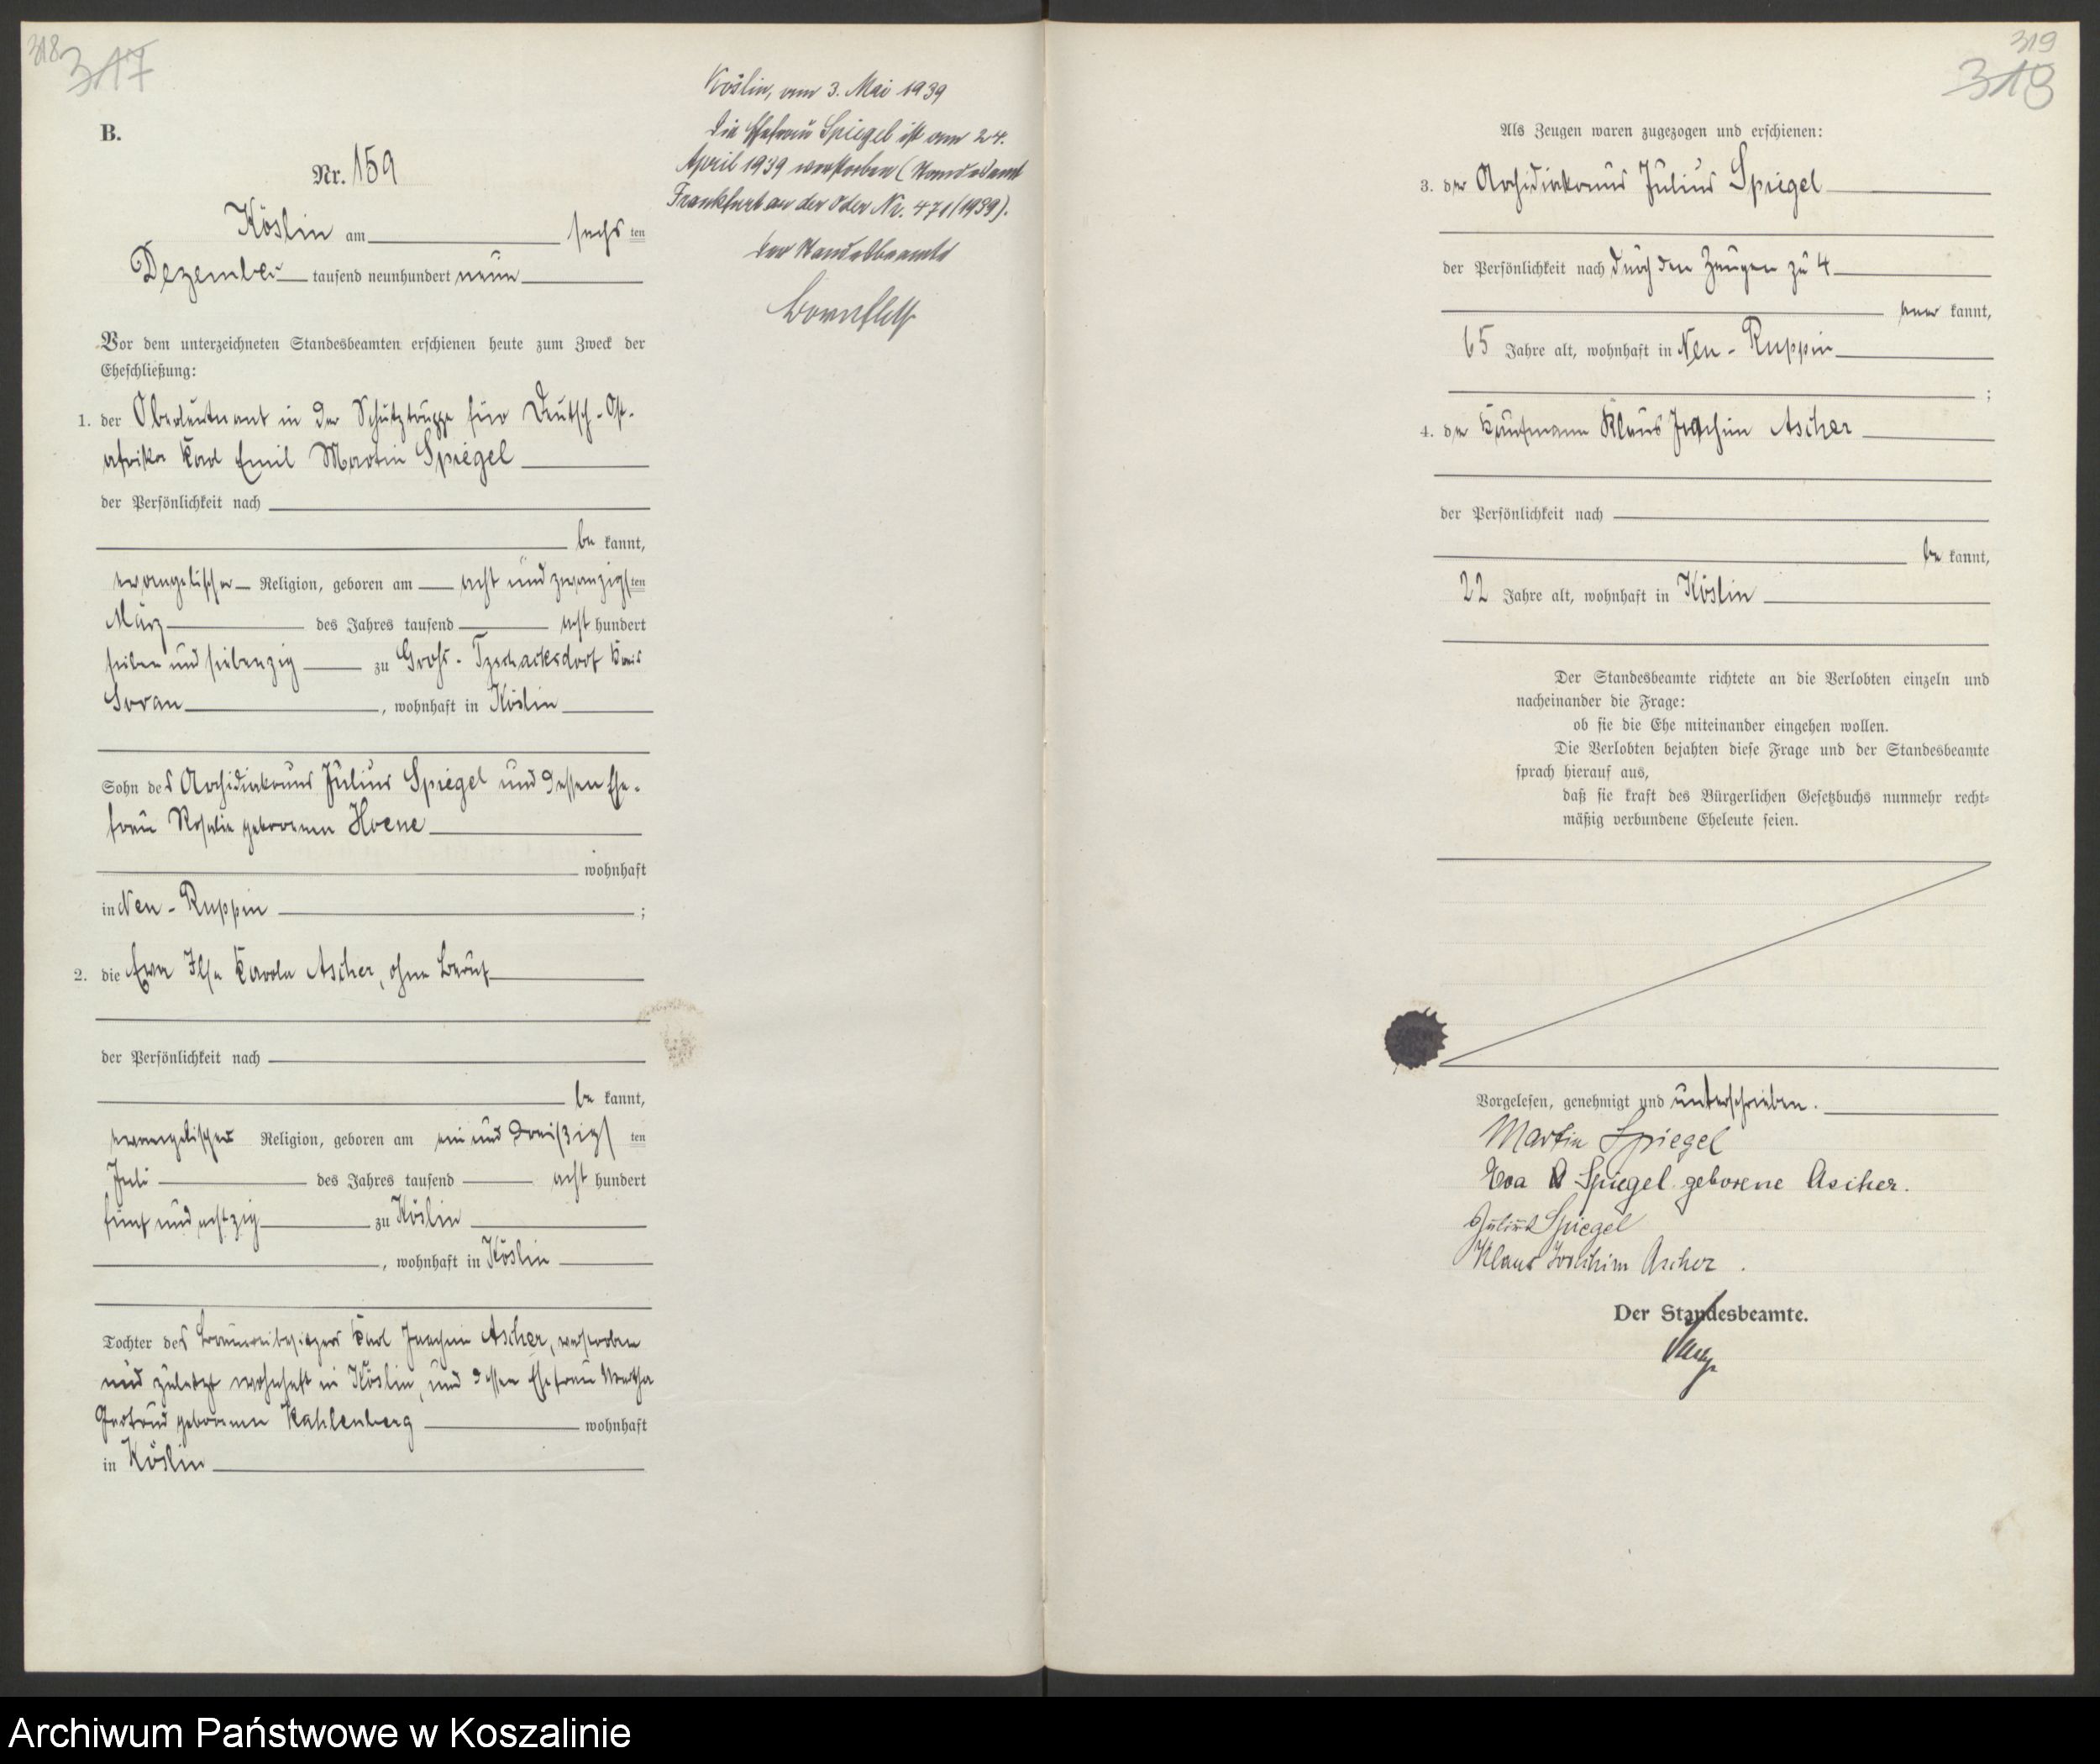 318
317
B.
Nr. 159
Köslin am sechs ten
Dezember tausend neunhundert neun
Vor dem unterzeichneten Standesbeamten erschienen heute zum Zweck der
Eheschließung:
1. der Oberleutnant in der Schutztruppe für Deutsch-Ost-
afrika Karl Emil Martin Spiegel
der Persönlichkeit nach
be kannt,
evangelischer Religion, geboren am acht und zwanzigsten
März des Jahres tausend acht hundert
sieben und siebenzig zu Gross-Tzschacksdorf Kreis
Sorau, wohnhaft in Köslin
Sohn des Archidiakonus Julius Spiegel und dessen Ehe-
frau Rosalie geborenen Hoene
wohnhaft
in Neu-Ruppin;
2. die Eva Ilse Karola Ascher, ohne Beruf
der Persönlichkeit nach
be kannt,
evangelischer Religion, geboren am ein und dreißigs ten
Juli des Jahres tausend acht hundert
fünf und achtzig zu Köslin
, wohnhaft in Köslin
Tochter des Brauereibesitzers Karl Joachim Ascher, verstorben
und zuletzt wohnhaft in Köslin, und dessen Ehefrau Martha
Gertrud geborenen Kahlenberg wohnhaft
in Köslin
Köslin, am 3. Mai 1939
Die Ehefrau Spiegel ist am 24.
April 1939 verstorben (Standesamt
Frankfurt an der Oder Nr. 471/1939).
Der Standesbeamte
319
318
Als Zeugen waren zugezogen und erschienen:
3. der Archidiakonus Julius Spiegel
der Persönlichkeit nach durch den Zeugen zu 4
aner kannt,
65 Jahre alt, wohnhaft in Neu-Ruppin
;
4. der Kaufmann Klaus Joachim Ascher
der Persönlichkeit nach
be kannt,
22 Jahre alt, wohnhaft in Köslin
Der Standesbeamte richtete an die Verlobten einzeln und
nacheinander die Frage:
ob sie die Ehe miteinander eingehen wollen.
Die Verlobten bejahten diese Frage und der Standesbeamte
sprach hierauf aus,
daß sie kraft des Bürgerlichen Gesetzbuchs nunmehr recht-
mäßig verbundene Eheleute seien.
Vorgelesen, genehmigt und unterschrieben.
Martin Spiegel
Eva Spiegel geborene Ascher.
Julius Spiegel
Klaus Joachim Ascher.
Der Standesbeamte.
Archiwum Państwowe w Koszalinie